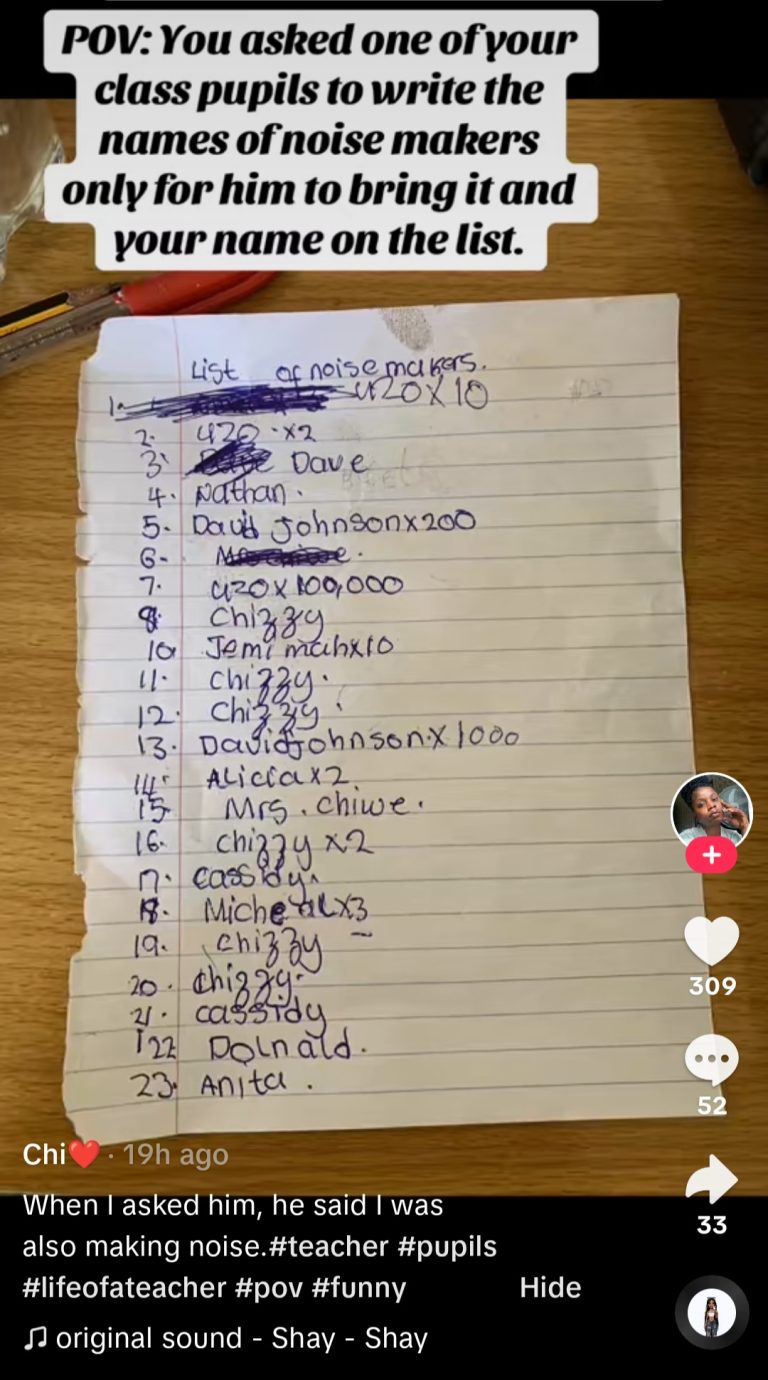 POV: You asked one of your
class pupils to write the
names of noise makers
only for him to bring it and
your name on the list.
List of noise makers.
1. 420X10
2. 420 ·x2
3. Dave
4. Nathan.
5. David Johnsonx200
6-
7. 420x100,000
8. Chizzy
10 Jemimahx10
11. Chizzy.
12. Chizzy.
13. DavidJohnsonx1000
14. Aliciax2.
15. Mrs. Chiwe.
16. Chizzy x2
17. Cassidy.
18. Michealx3
19. Chizzy
20. Chizzy.
21. cassidy
22 Dolnald.
23. Anita.
309
52
33
Chi❤️ · 19h ago
When I asked him, he said I was
also making noise.#teacher #pupils
#lifeofateacher #pov #funny Hide
original sound - Shay - Shay